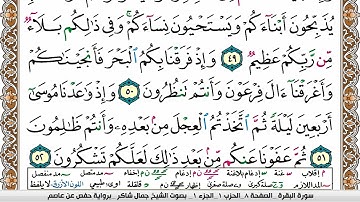 يُذَبِّحُونَ أَبْنَاءَكُمْ وَيَسْتَحْيُونَ نِسَاءَكُمْ وَفِي ذَٰلِكُم بَلَاءٌ
مِّن رَّبِّكُمْ عَظِيمٌ ٤٩ وَإِذْ فَرَقْنَا بِكُمُ الْبَحْرَ فَأَنجَيْنَاكُمْ
وَأَغْرَقْنَا ءَالَ فِرْعَوْنَ وَأَنتُمْ تَنظُرُونَ ٥٠ وَإِذْ وَاعَدْنَا مُوسَىٰ
أَرْبَعِينَ لَيْلَةً ثُمَّ اتَّخَذْتُمُ الْعِجْلَ مِن بَعْدِهِ وَأَنتُمْ ظَالِمُونَ
٥١ ثُمَّ عَفَوْنَا عَنكُم مِّن بَعْدِ ذَٰلِكَ لَعَلَّكُمْ تَشْكُرُونَ ٥٢
سورة البقرة . الصفحة ٨ . الحزب ١ . الجزء ١ . بصوت الشيخ جمال شاكر . برواية حفص عن عاصم